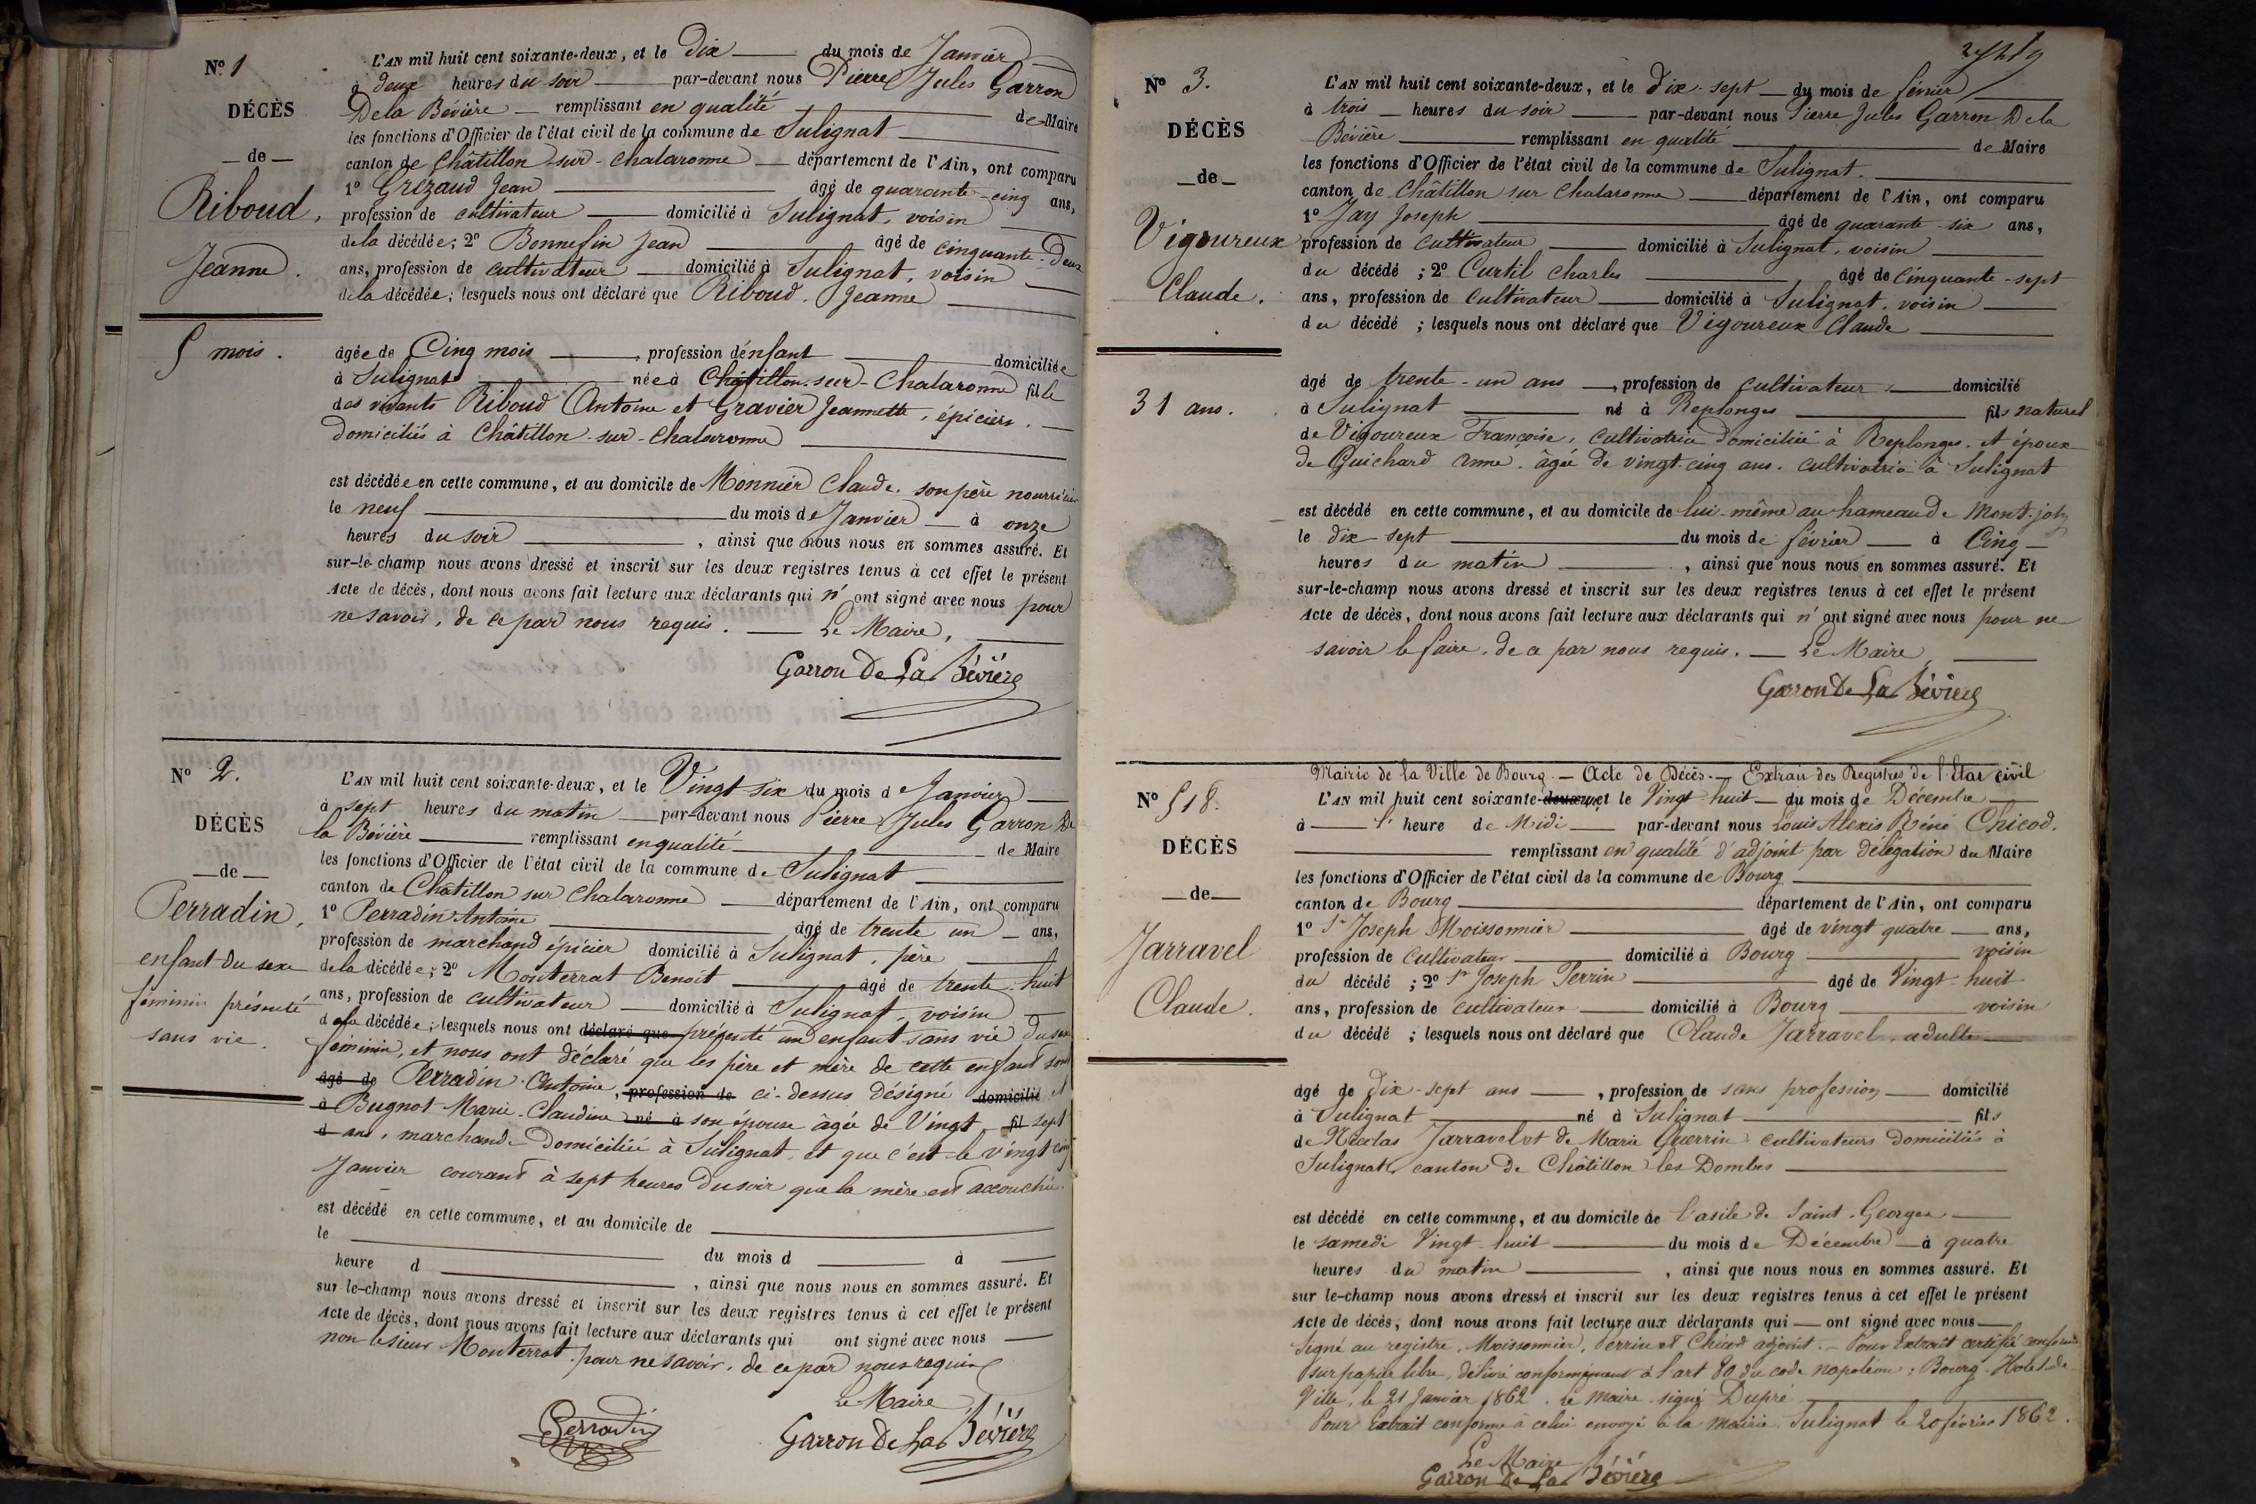 N° 1
DÉCÈS
— de —
Riboud,
Jeanne.
5 mois.
L'AN mil huit cent soixante-deux, et le Dix du mois de Janvier
à deux heures du soir par-devant nous Pierre Jules Garron
De la Bévière remplissant en qualité de Maire
les fonctions d'Officier de l'état civil de la commune de Sulignat
canton de Châtillon-sur-Chalaronne département de l'Ain, ont comparu
1° Grézaud Jean âgé de quarante-cinq ans,
profession de cultivateur domicilié à Sulignat, voisin
de la décédée; 2° Bonnefin Jean âgé de cinquante-Deux
ans, profession de cultivateur domicilié à Sulignat, voisin
de la décédée; lesquels nous ont déclaré que Riboud, Jeanne
âgée de Cinq mois, profession d'enfant domiciliée
à Sulignat née à Châtillon-sur-Chalaronne fille
des vivants Riboud Antoine et Gravier Jeannette, épiciers.
domiciliés à Châtillon-sur-Chalaronne
est décédée en cette commune, et au domicile de Monnier Claude, son père nourricier
le neuf du mois de Janvier à onze
heures du soir, ainsi que nous nous en sommes assuré. Et
sur-le-champ nous avons dressé et inscrit sur les deux registres tenus à cet effet le présent
Acte de décès, dont nous avons fait lecture aux déclarants qui n'ont signé avec nous pour
ne savoir, de ce par nous requis. — Le Maire,
Garron De La Bévière
N° 2.
DÉCÈS
— de —
Perradin,
enfant du sexe
féminin présenté
sans vie.
L'AN mil huit cent soixante-deux, et le Vingt six du mois de Janvier
à sept heures du matin par-devant nous Pierre Jules Garron De
la Bévière remplissant en qualité de Maire
les fonctions d'Officier de l'état civil de la commune de Sulignat
canton de Châtillon sur Chalaronne département de l'Ain, ont comparu
1° Perradin Antoine âgé de trente un ans,
profession de marchand épicier domicilié à Sulignat, père
de la décédée; 2° Monterrat Benoît âgé de trente-huit
ans, profession de cultivateur domicilié à Sulignat, voisin
de la décédée; lesquels nous ont déclaré que présenté un enfant sans vie du sexe
féminin, et nous ont déclaré que les père et mère de cette enfant sont
âgé de Perradin Antoine, profession de ci-dessus désigné domicilié et
à Bugnot Marie-Claudine né à son épouse âgée de Vingt fil sept
d ans, marchande Domiciliée à Sulignat, et que c'est le vingt cinq
Janvier courant à sept heures du soir que la mère est accouchée.
est décédé en cette commune, et au domicile de
le
du mois d à
heure d, ainsi que nous nous en sommes assuré. Et
sur le-champ nous avons dressé et inscrit sur les deux registres tenus à cet effet le présent
Acte de décès, dont nous avons fait lecture aux déclarants qui ont signé avec nous
non le sieur Monterrat pour ne savoir, de ce par nous requis
Le Maire,
Perradin
Garron De La Bévière
N° 3.
DÉCÈS
— de —
Vigoureux
Claude.
31 ans.
L'AN mil huit cent soixante-deux, et le Dix-sept du mois de février
à trois heures du soir par-devant nous Pierre Jules Garron De la
Bévière remplissant en qualité de Maire
les fonctions d'Officier de l'état civil de la commune de Sulignat.
canton de Châtillon sur Chalaronne département de l'Ain, ont comparu
1° Jay Joseph âgé de quarante-six ans,
profession de cultivateur domicilié à Sulignat, voisin
du décédé; 2° Curtil Charles âgé de cinquante-sept
ans, profession de cultivateur domicilié à Sulignat, voisin
du décédé; lesquels nous ont déclaré que Vigoureux Claude
âgé de trente-un ans, profession de cultivateur, domicilié
à Sulignat né à Replonges fils naturel
de Vigoureux Françoise, cultivatrice Domiciliée à Replonges. Et époux
de Guichard Anne, âgée de vingt-cinq ans, cultivatrice à Sulignat
est décédé en cette commune, et au domicile de lui-même au hameau de Mont-joly
le dix-sept du mois de février à Cinq
heures du matin, ainsi que nous nous en sommes assuré. Et
sur-le-champ nous avons dressé et inscrit sur les deux registres tenus à cet effet le présent
Acte de décès, dont nous avons fait lecture aux déclarants qui n'ont signé avec nous pour ne
savoir le faire, de ce par nous requis. — Le Maire
Garron De La Bévière
N° 518.
DÉCÈS
— de —
Jarravel
Claude.
Mairie de la Ville de Bourg. — Acte de Décès. — Extrait des Registres de l'Etat civil
L'AN mil huit cent soixante-deux un, et le Vingt-huit du mois de Décembre
à l'heure de Midi par-devant nous Louis Alexis Réné Chicod.
remplissant en qualité d'adjoint par délégation du Maire
les fonctions d'Officier de l'état civil de la commune de Bourg
canton de Bourg département de l'Ain, ont comparu
1° Sr Joseph Moissonnier âgé de vingt quatre ans,
profession de Cultivateur domicilié à Bourg voisin
du décédé; 2° Sr Joseph Perrin âgé de Vingt-huit
ans, profession de cultivateur domicilié à Bourg voisin
du décédé; lesquels nous ont déclaré que Claude Jarravel, adulte
âgé de Dix-sept ans, profession de sans profession domicilié
à Sulignat né à Sulignat fils
de Nicolas Jarravel et de Marie Guerrin cultivateurs domiciliés à
Sulignat, canton de Châtillon les Dombes
est décédé en cette commune, et au domicile de l'asile de Saint-Georges
le samedi Vingt-huit du mois de Décembre à quatre
heures du matin, ainsi que nous nous en sommes assuré. Et
sur le-champ nous avons dressé et inscrit sur les deux registres tenus à cet effet le présent
Acte de décès, dont nous avons fait lecture aux déclarants qui — ont signé avec nous
Signé au registre, Moissonnier, Perrin et Chicod adjoint. — Pour Extrait certifié conforme
sur papier libre, délivré conformément à l'art 80 du code napoléon; Bourg Hotel-de-
Ville, le 21 Janvier 1862. le maire signé Dupré
Pour Extrait conforme à celui envoyé à la Mairie Sulignat le 20 février 1862.
Le Maire
Garron De La Bévière